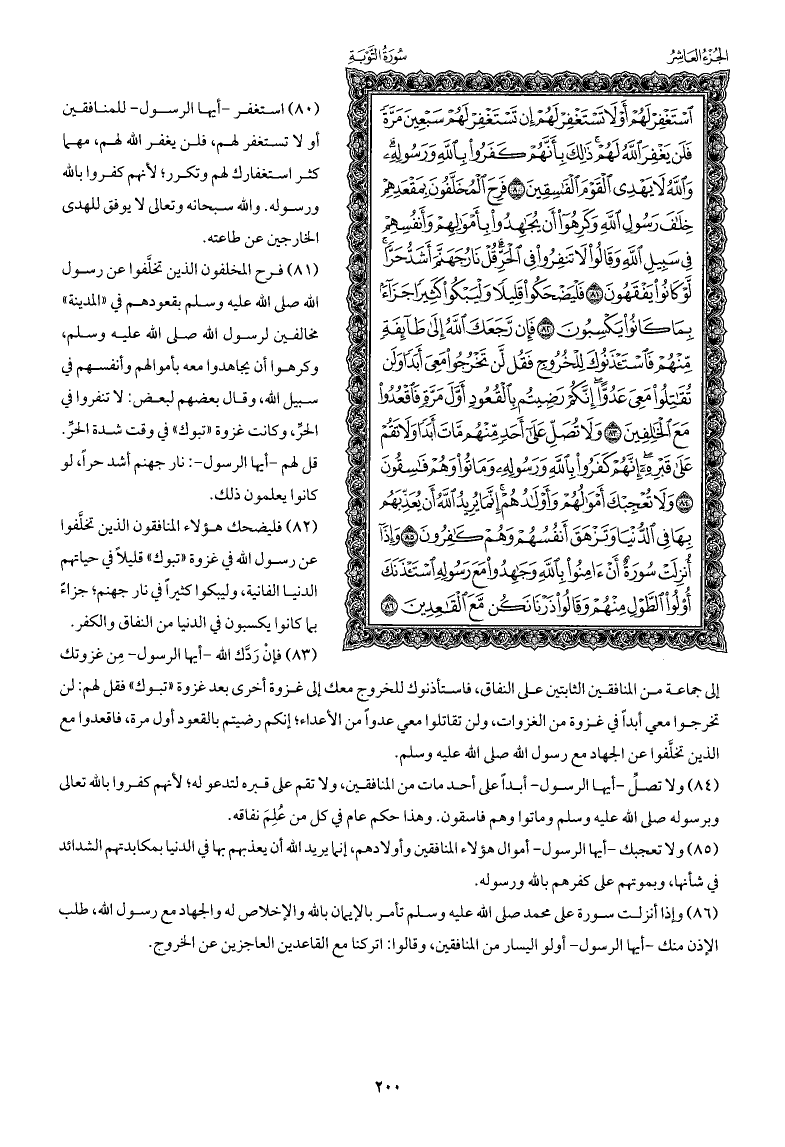 الجُزْءُ العَاشِرُ
سُورَةُ التَّوْبَةِ
ٱسْتَغْفِرْ لَهُمْ أَوْ لَا تَسْتَغْفِرْ لَهُمْ إِن تَسْتَغْفِرْ لَهُمْ سَبْعِينَ مَرَّةً
فَلَن يَغْفِرَ ٱللَّهُ لَهُمْ ۚ ذَٰلِكَ بِأَنَّهُمْ كَفَرُوا۟ بِٱللَّهِ وَرَسُولِهِۦ ۗ
وَٱللَّهُ لَا يَهْدِى ٱلْقَوْمَ ٱلْفَـٰسِقِينَ ٨٠ فَرِحَ ٱلْمُخَلَّفُونَ بِمَقْعَدِهِمْ
خِلَـٰفَ رَسُولِ ٱللَّهِ وَكَرِهُوٓا۟ أَن يُجَـٰهِدُوا۟ بِأَمْوَٰلِهِمْ وَأَنفُسِهِمْ
فِى سَبِيلِ ٱللَّهِ وَقَالُوا۟ لَا تَنفِرُوا۟ فِى ٱلْحَرِّ ۗ قُلْ نَارُ جَهَنَّمَ أَشَدُّ حَرًّا ۚ
لَّوْ كَانُوا۟ يَفْقَهُونَ ٨١ فَلْيَضْحَكُوا۟ قَلِيلًا وَلْيَبْكُوا۟ كَثِيرًا جَزَآءًۢ
بِمَا كَانُوا۟ يَكْسِبُونَ ٨٢ فَإِن رَّجَعَكَ ٱللَّهُ إِلَىٰ طَآئِفَةٍ
مِّنْهُمْ فَٱسْتَـْٔذَنُوكَ لِلْخُرُوجِ فَقُل لَّن تَخْرُجُوا۟ مَعِىَ أَبَدًا وَلَن
تُقَـٰتِلُوا۟ مَعِىَ عَدُوًّا ۖ إِنَّكُمْ رَضِيتُم بِٱلْقُعُودِ أَوَّلَ مَرَّةٍ فَٱقْعُدُوا۟
مَعَ ٱلْخَـٰلِفِينَ ٨٣ وَلَا تُصَلِّ عَلَىٰٓ أَحَدٍ مِّنْهُم مَّاتَ أَبَدًا وَلَا تَقُمْ
عَلَىٰ قَبْرِهِۦٓ ۖ إِنَّهُمْ كَفَرُوا۟ بِٱللَّهِ وَرَسُولِهِۦ وَمَاتُوا۟ وَهُمْ فَـٰسِقُونَ
٨٤ وَلَا تُعْجِبْكَ أَمْوَٰلُهُمْ وَأَوْلَـٰدُهُمْ ۚ إِنَّمَا يُرِيدُ ٱللَّهُ أَن يُعَذِّبَهُم
بِهَا فِى ٱلدُّنْيَا وَتَزْهَقَ أَنفُسُهُمْ وَهُمْ كَـٰفِرُونَ ٨٥ وَإِذَآ
أُنزِلَتْ سُورَةٌ أَنْ ءَامِنُوا۟ بِٱللَّهِ وَجَـٰهِدُوا۟ مَعَ رَسُولِهِ ٱسْتَـْٔذَنَكَ
أُو۟لُوا۟ ٱلطَّوْلِ مِنْهُمْ وَقَالُوا۟ ذَرْنَا نَكُن مَّعَ ٱلْقَـٰعِدِينَ ٨٦
(٨٠) استغفر -أيها الرسول- للمنافقين
أو لا تستغفر لهم، فلن يغفر الله لهم، مهما
كثر استغفارك لهم وتكرر؛ لأنهم كفروا بالله
ورسوله. والله سبحانه وتعالى لا يوفق للهدى
الخارجين عن طاعته.
(٨١) فرح المخلفون الذين تخلَّفوا عن رسول
الله صلى الله عليه وسلم بقعودهم في «المدينة»
مخالفين لرسول الله صلى الله عليه وسلم،
وكرهوا أن يجاهدوا معه بأموالهم وأنفسهم في
سبيل الله، وقال بعضهم لبعض: لا تنفروا في
الحرِّ، وكانت غزوة «تبوك» في وقت شدة الحرِّ.
قل لهم -أيها الرسول-: نار جهنم أشد حراً، لو
كانوا يعلمون ذلك.
(٨٢) فليضحك هؤلاء المنافقون الذين تخلَّفوا
عن رسول الله في غزوة «تبوك» قليلاً في حياتهم
الدنيا الفانية، وليبكوا كثيراً في نار جهنم؛ جزاءً
بما كانوا يكسبون في الدنيا من النفاق والكفر.
(٨٣) فإنْ رَدَّك الله -أيها الرسول- مِن غزوتك
إلى جماعة من المنافقين الثابتين على النفاق، فاستأذنوك للخروج معك إلى غزوة أخرى بعد غزوة «تبوك» فقل لهم: لن
تخرجوا معي أبداً في غزوة من الغزوات، ولن تقاتلوا معي عدواً من الأعداء؛ إنكم رضيتم بالقعود أول مرة، فاقعدوا مع
الذين تخلَّفوا عن الجهاد مع رسول الله صلى الله عليه وسلم.
(٨٤) ولا تصلِّ -أيها الرسول- أبداً على أحد مات من المنافقين، ولا تقم على قبره لتدعو له؛ لأنهم كفروا بالله تعالى
وبرسوله صلى الله عليه وسلم وماتوا وهم فاسقون. وهذا حكم عام في كل من عُلِمَ نفاقه.
(٨٥) ولا تعجبك -أيها الرسول- أموال هؤلاء المنافقين وأولادهم، إنما يريد الله أن يعذبهم بها في الدنيا بمكابدتهم الشدائد
في شأنها، وبموتهم على كفرهم بالله ورسوله.
(٨٦) وإذا أنزلت سورة على محمد صلى الله عليه وسلم تأمر بالإيمان بالله والإخلاص له والجهاد مع رسول الله، طلب
الإذن منك -أيها الرسول- أولو اليسار من المنافقين، وقالوا: اتركنا مع القاعدين العاجزين عن الخروج.
٢٠٠